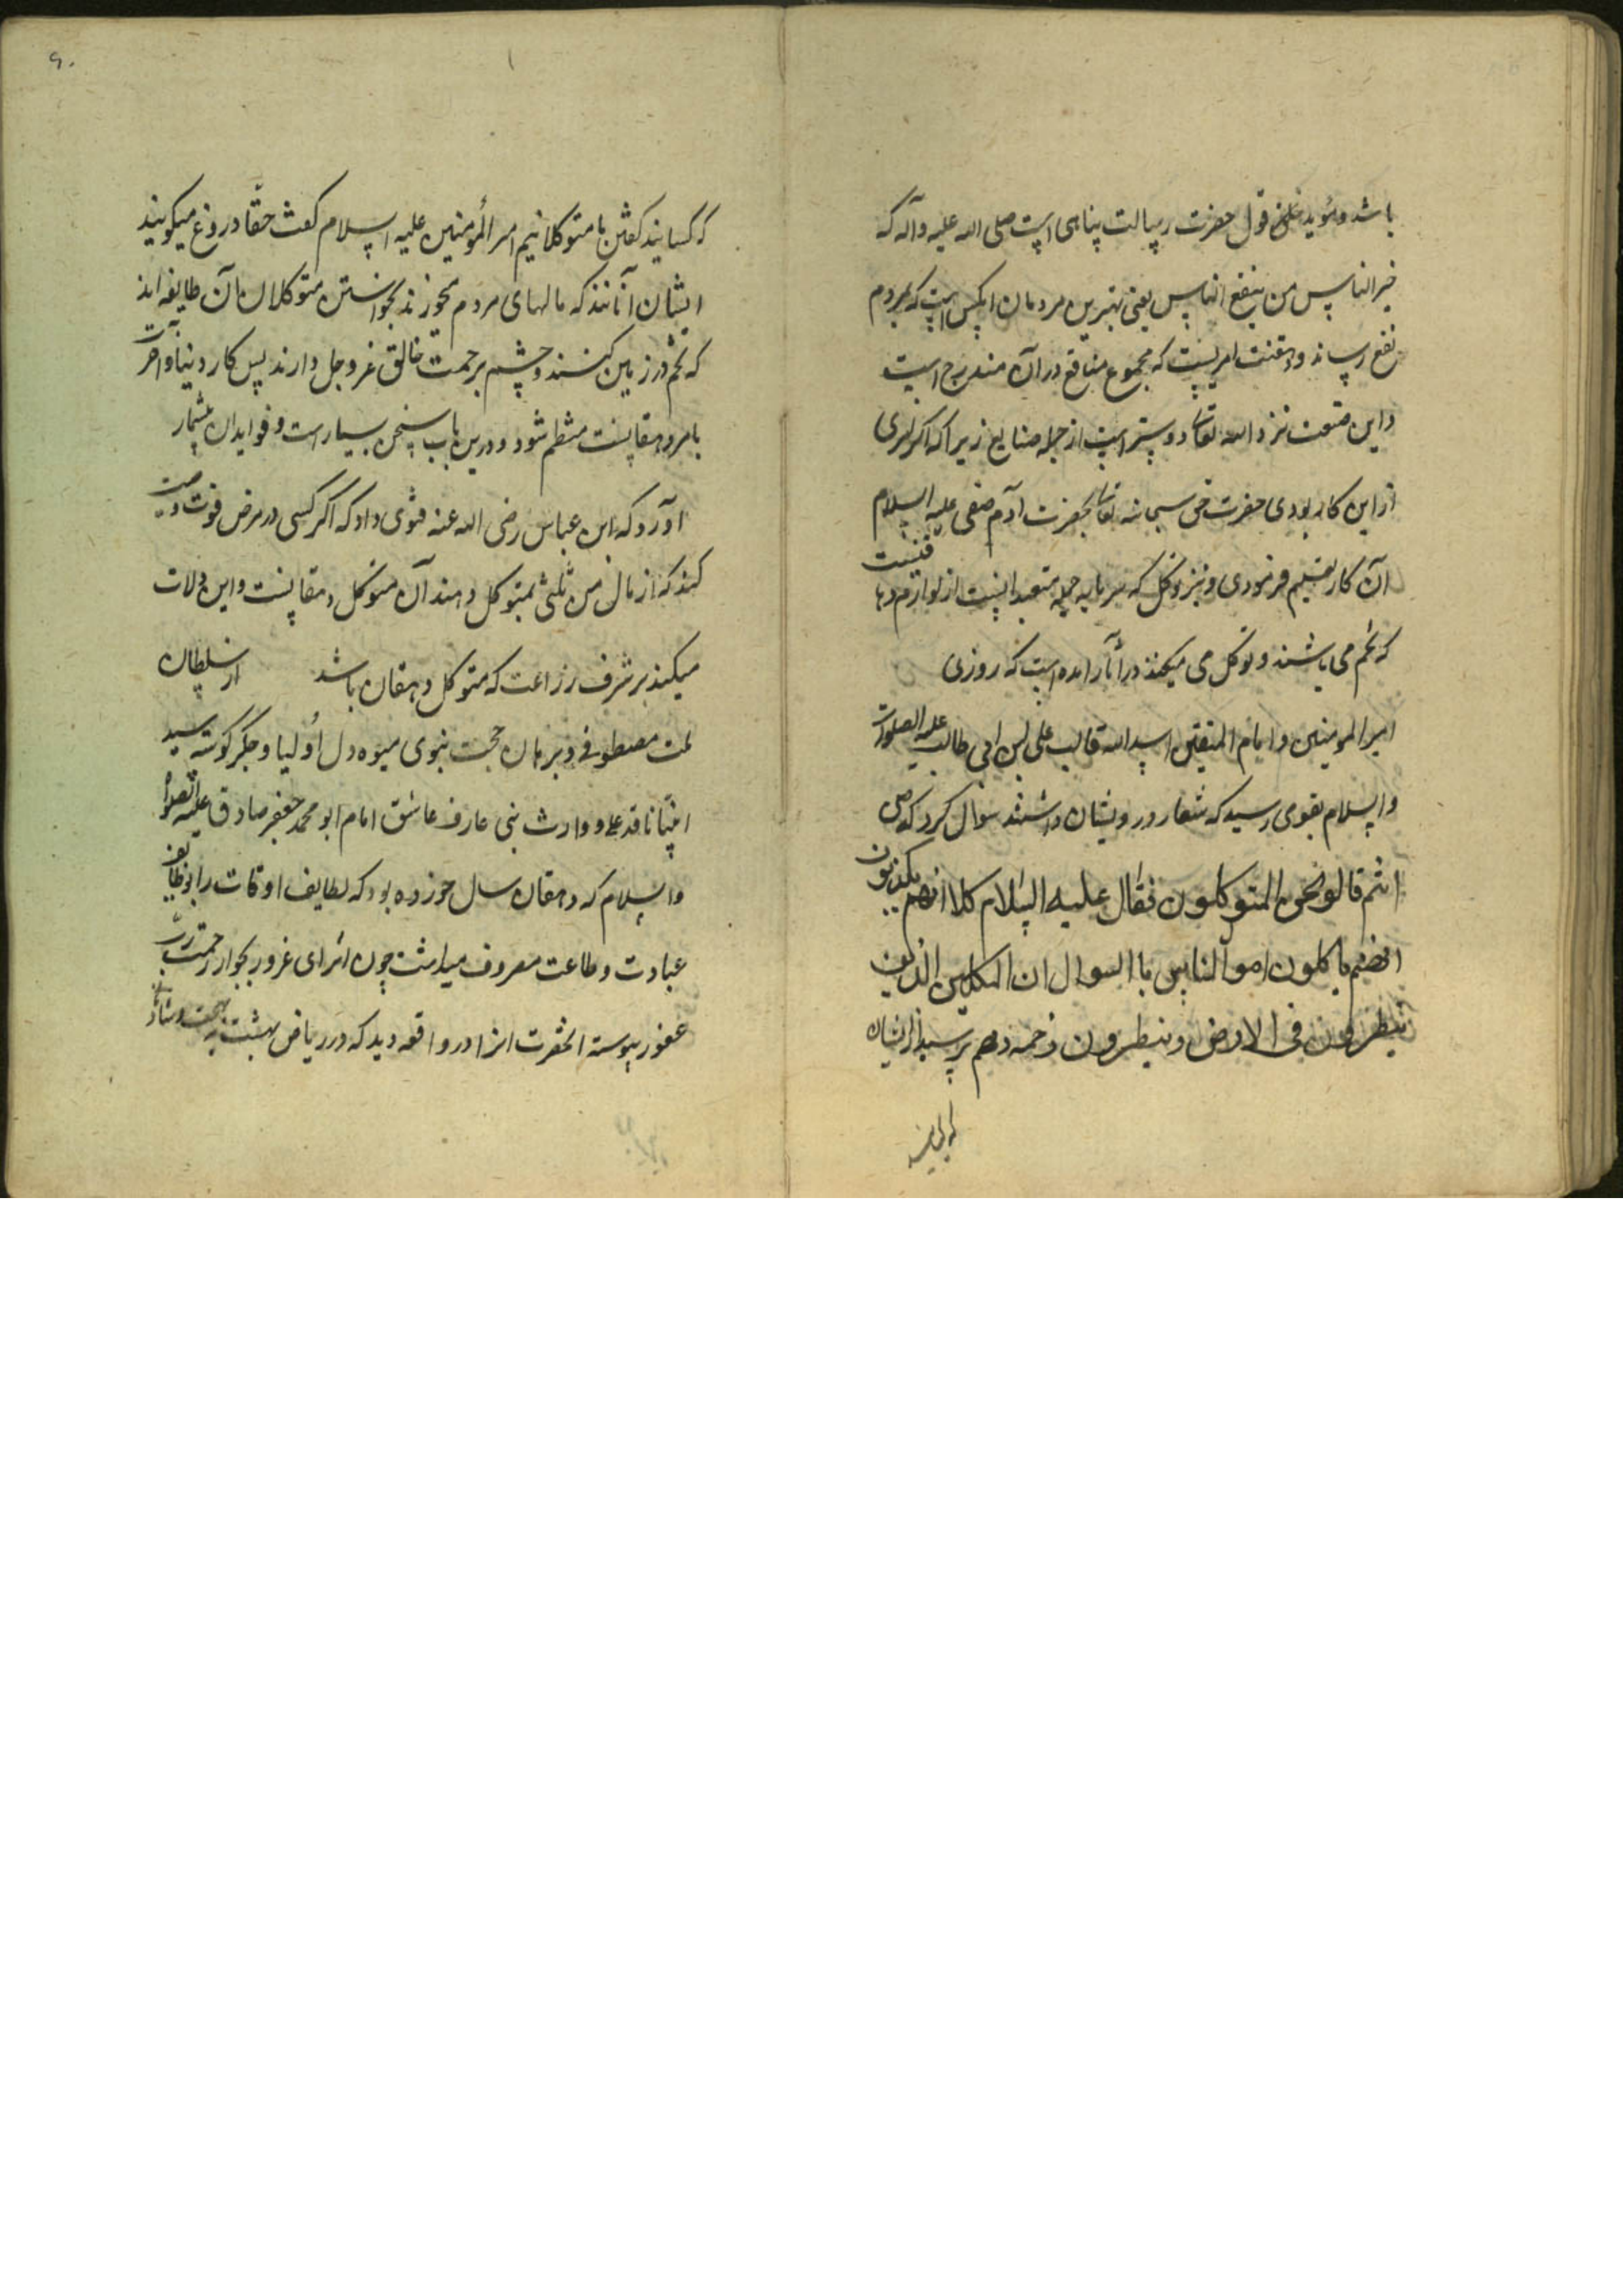 باشد و مؤید این قول حضرت رسالت پناهی است صلی الله علیه وآله که
خیر الناس من ینفع الناس یعنی بهترین مردمان آنکس است که بمردم
نفع رساند و دهقنت امریست که مجموع منافع در آن مندرج است
و این صنعت نزد الله تعالی دوستر است از جمله صنایع زیرا که اگر امری
از این کار بودی حضرت حق سبحانه تعالی بحضرت آدم صفی علیه السلام
آن کار تعلیم فرمودی و نیز توکل که سرمایه جمله متعبدانست از لوازم دهاقنیست
که تخم می پاشند و توکل می میکنند در آثار آمده است که روزی
امیر المومنین و امام المتقین اسد الله قالب علی ابن ابی طالب علیه الصلوات
و السلام بقومی رسید که شعار درویشان داشتند سوال کرد که من
انتم قالو نحن المتوکلون فقال علیه السلام کلا انهم یکذبون
انهم یاکلون اموالناس باالسوال ان المتکلین الذین
ینطرفون فی الارض و ینطرون رحمه ربهم پرسید از ایشان
که کسانید کفتن ما متوکلانیم امر المومنین علیه اسلام کفت حقا دروغ میکویند
ایشان آنانند که مالهای مردم بخورند بخواستن متوکلان آن طایفه اند
که تخم در زمین کنند و چشم بر رحمت خالق عز و جل دارند پس کار دنیا و آخرت
بامر دهقانت منتظم شود و درین باب سخن بسیار است و فواید آن بیشمار
آورد که ابن عباس رضی الله عنه فتوی داد که اکر کسی در مرض فوت وصیت
کند که از مال من ثلثی بمتوکل دهند آن متوکل دهقانست و این دلات
میکند بر شرف زراعت که متوکل دهقان باشد از سلطان
ملت مصطوفی و برهان حجت نبوی میوه دل اولیا و جکر کوشه سید
انبیا ناقد علی و وارث نبی عارف عاشق امام ابو محمد جعفر صادق علیه الصلوة
و السلام که دهقان سال خورده بود که لطایف اوقات را بوظایف
عبادت و طاعت معروف میداشت چون از سرای غرور بجوار رحمت رب
غفور پیوست آنحضرت او را در واقعه دید که در ریاض بهشت